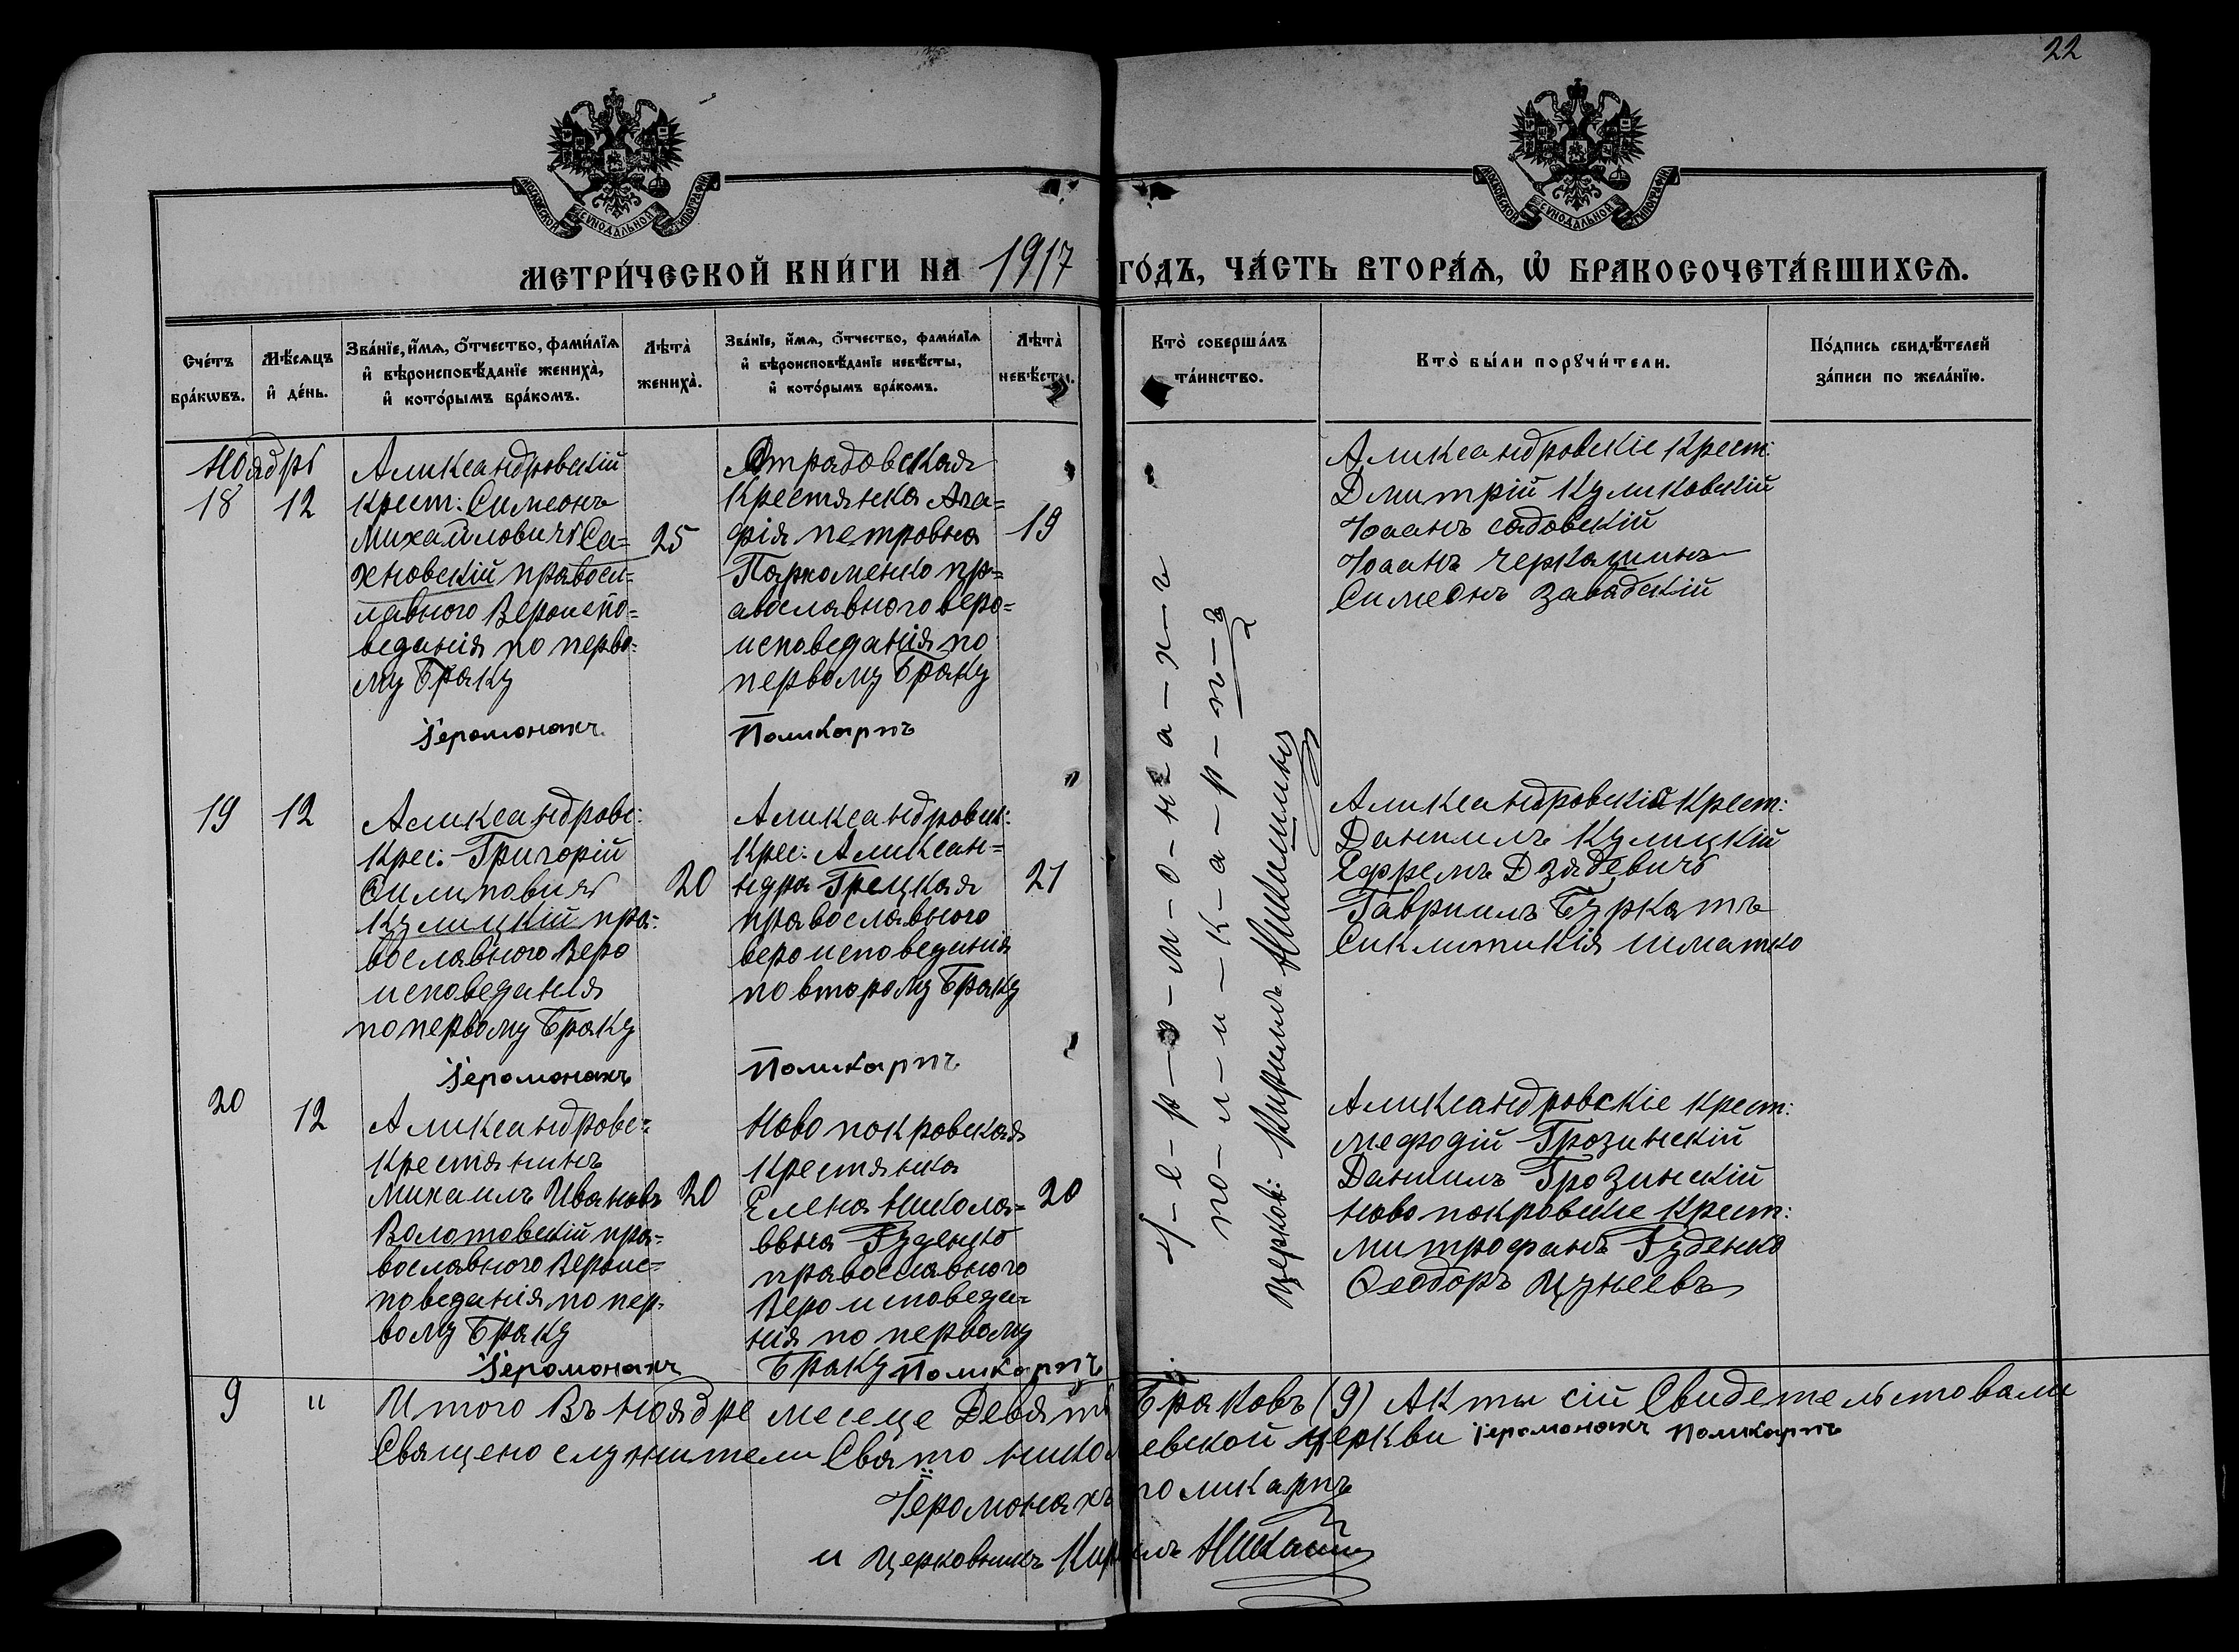 22
МОСКОВСКОЙ СѴНОДАЛЬНОЙ ТИПОГРАФІИ
МОСКОВСКОЙ СѴНОДАЛЬНОЙ ТИПОГРАФІИ
МЕТРИ́ЧЕСКОЙ КНИ́ГИ НА 1917 ГО́ДЪ, ЧА́СТЬ ВТОРА́Ѧ, Ѡ҆ БРАКОСОЧЕТА́ВШИХСѦ.
Сче́тъ
бра́кѡвъ.
Мѣ́сѧцъ
и҆ де́нь.
Зва́нїе, и҆́мѧ, ѻ҆́тчество, фами́лїѧ
и҆ вѣроисповѣ́данїе жениха̀,
и҆ кото́рымъ бра́комъ.
Лѣта̀
жениха̀.
Зва́нїе, и҆́мѧ, ѻ҆́тчество, фами́лїѧ
и҆ вѣроисповѣ́данїе невѣ́сты,
и҆ кото́рымъ бра́комъ.
Лѣта̀
невѣ́сты.
Кто̀ соверша́лъ
та́инство.
Кто̀ бы́ли порꙋчи́тели.
По́дпись свидѣ́телей
за́писи по жела́нїю.
Ноябрь
18
12
Аликсандровскій
крест: Симеонъ
Михайловичъ Са=
хновскій правосл=
лавного Вероиспо=
веданія по перво=
му Браку
25
Отрадовская
Крестянка Ага=
фія петровна
Пархоменко пр=
авославного веро=
исповеданія по
первому Браку
19
Іеромонахъ
Поликарпъ
Аликсандровскіе Крест:
Дмитрій Куликовскій
Іоанъ садовскій
Іоанъ Черкашинъ
Симеонъ Завадскій
19
12
Аликсандровс:
Крес: Григорій
Филиповичъ
Кулицкій пра:
вославного Веро
исповеданія
по первому Браку
20
Аликсандровск:
Крес: Аликсан=
ндра Грецкая
православного
вероисповеданія
по второму Браку
21
Іеромонахъ
Поликарпъ
Аликсандровскіе Крест:
Даниилъ Кулицкій
Ефремъ Дзядевичъ
Гавриилъ Буркатъ
Сиклитикія Шматко
20
12
Аликсандровс=
Крестянинъ
Михаилъ Ивановъ
Волотовскій пра=
вославного Вероис=
поведанія по пер=
вому Браку
20
Ново покровская
Крестянка
Елена Никола=
ввна Гуденко
православного
Вероисповеда=
нія по первому
Браку
20
Іеромонахъ
Поликарпъ
Аликсандровскіе крест:
Мефодій Грозинскій
Даниилъ Грозинскій
Ново покровскіе Крест:
Митрофанъ Гуденко
Феодоръ Цунеевъ
І-е-р-о-м-о-н-а-х-ъ
по-л-и-к-а-р-п-ъ
Церков: Кирилъ
9
"
Итого Въ ноябре месеце Девять Браковъ (9) Акты сій Свидетельствовали
Священо служители Свято николаевской церкви Іеромонахъ Поликарпъ
Іеромонахъ поликарпъ
и Церковникъ Кирилъ